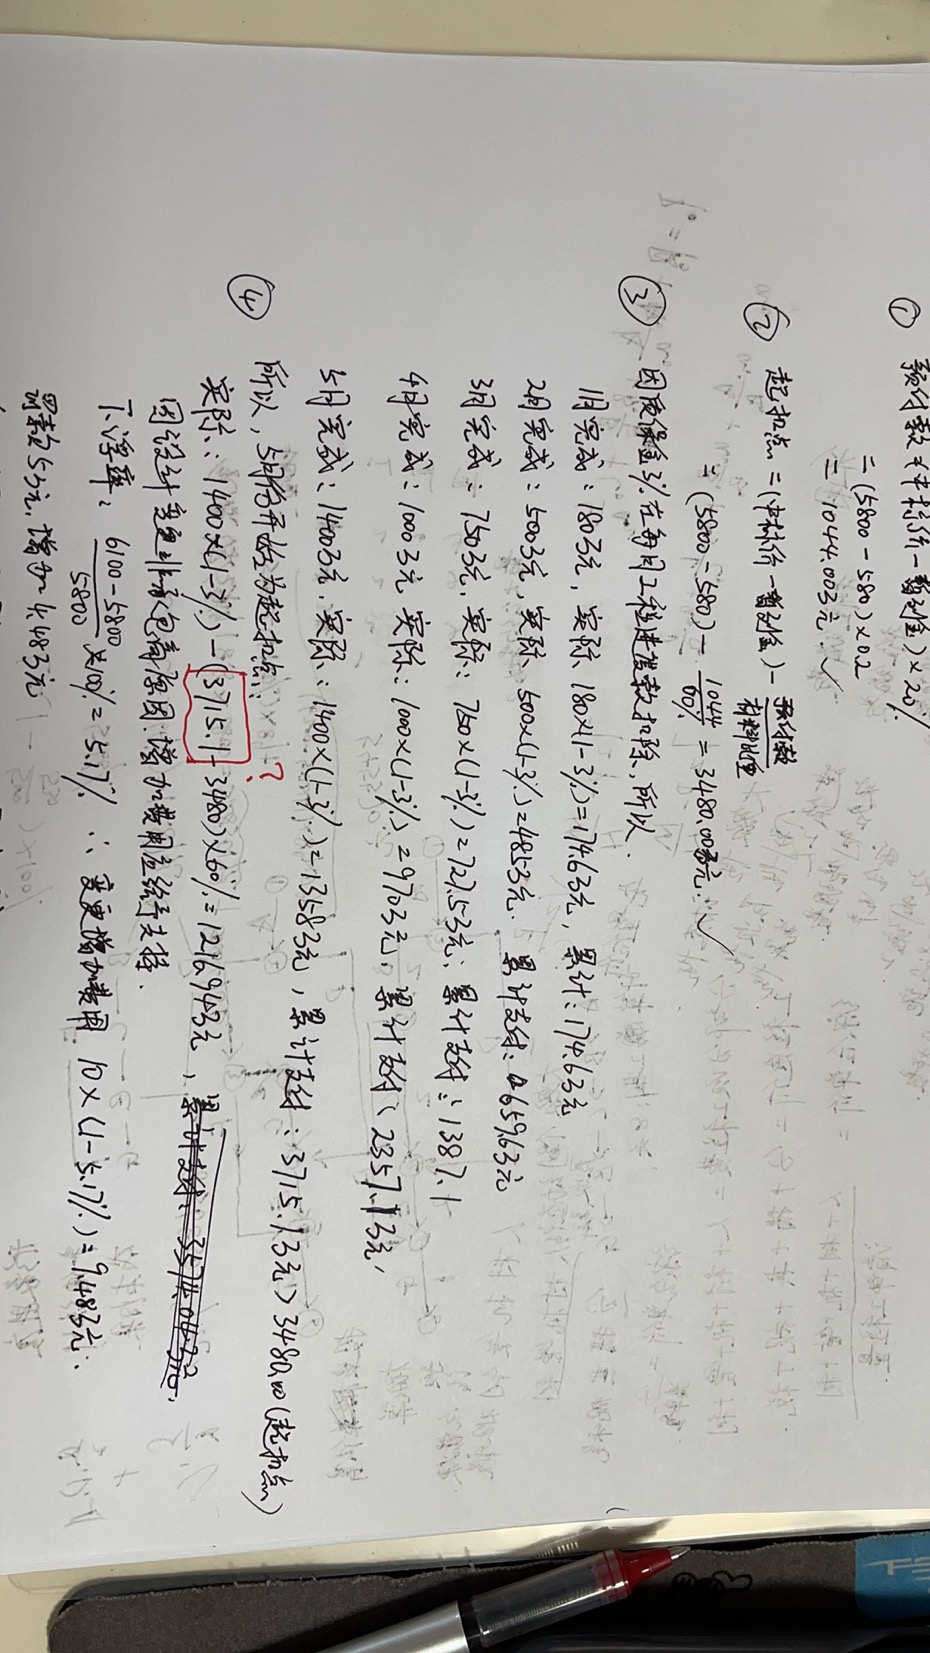 ① 预付款=(中标价-暂列金)×20%
=(5800-580)×0.2
=1044.00万元. ✓
② 起扣点=(中标价-暂列金)-预付款/材料比重
=(5800-580)-1044/60%=3480.00万元. ✓
③ 因质保金3%在每月工程进度款扣除,所以.
1月完成:180万元,实际 180×(1-3%)=174.6万元,累计:174.6万元
2月完成:500万元,实际:500×(1-3%)=485万元. 累计支付:659.6万元
3月完成:750万元,实际:750×(1-3%)=727.5万元;累计支付:1387.1
4月完成:1000万元 实际:1000×(1-3%)=970万元,累计支付:2357.1万元,
5月完成:1400万元.实际:1400×(1-3%)=1358万元,累计支付:3715.1万元>3480.00(起扣点)
所以,5月份开始为起扣点:
?
实际:1400×(1-3%)-(3715.1-3480)×60%=1216.94万元,
④ 因设计变更非承包商原因.增加费用应给予支持.
下浮率:6100-5800/5800×100%=5.17% ∴变更增加费用 10×(1-5.17%)=9.48万元:
罚款5万元.增加4.48万元